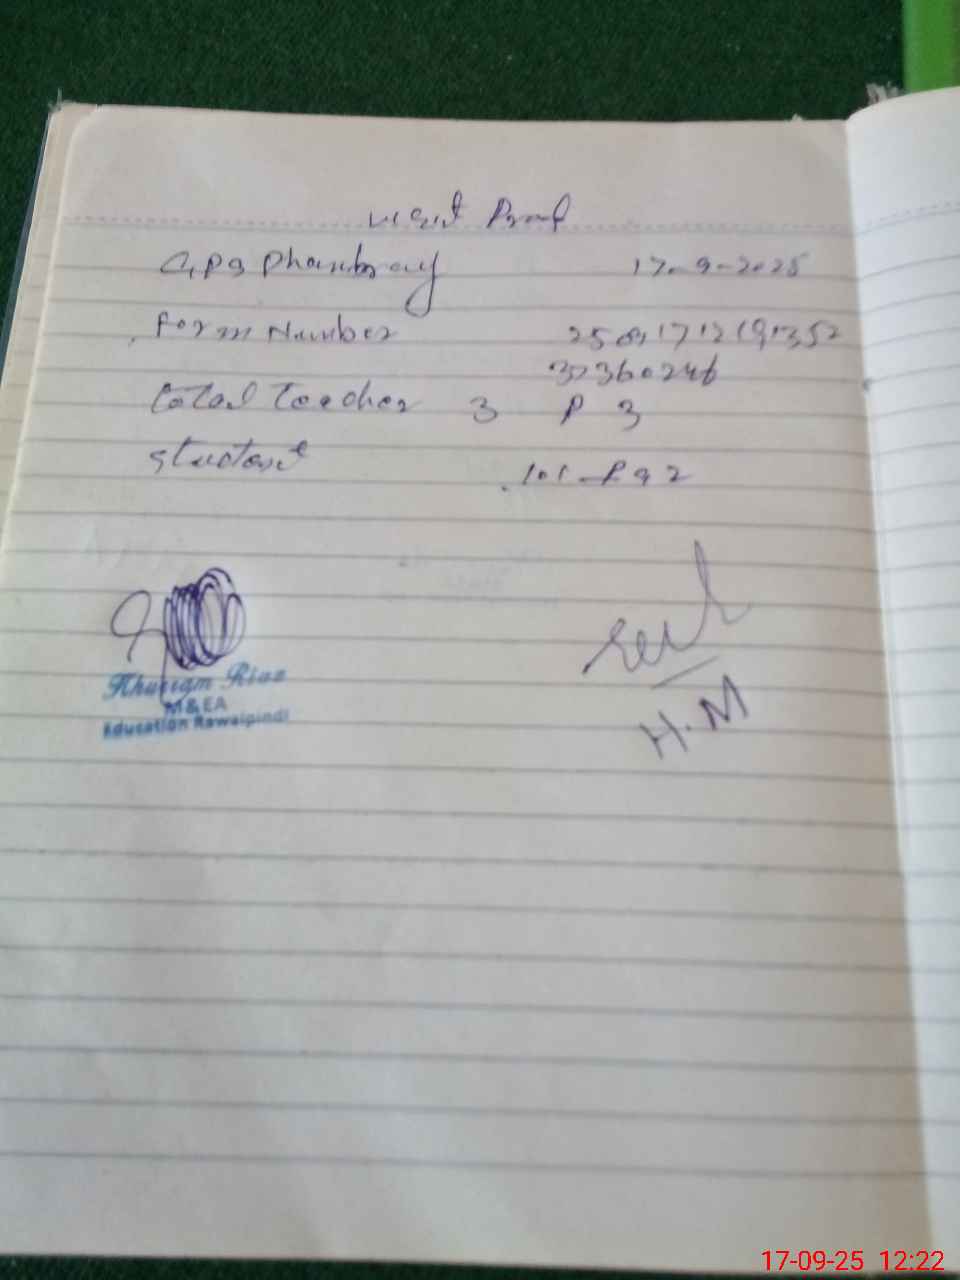 visit Proof
GPS Phambray 17-9-2025
Form Number
32360246
total teacher 3 P 3
student 101 - P 92
Khurram Riaz
M&EA
Education Rawalpindi
H.M
17-09-25 12:22